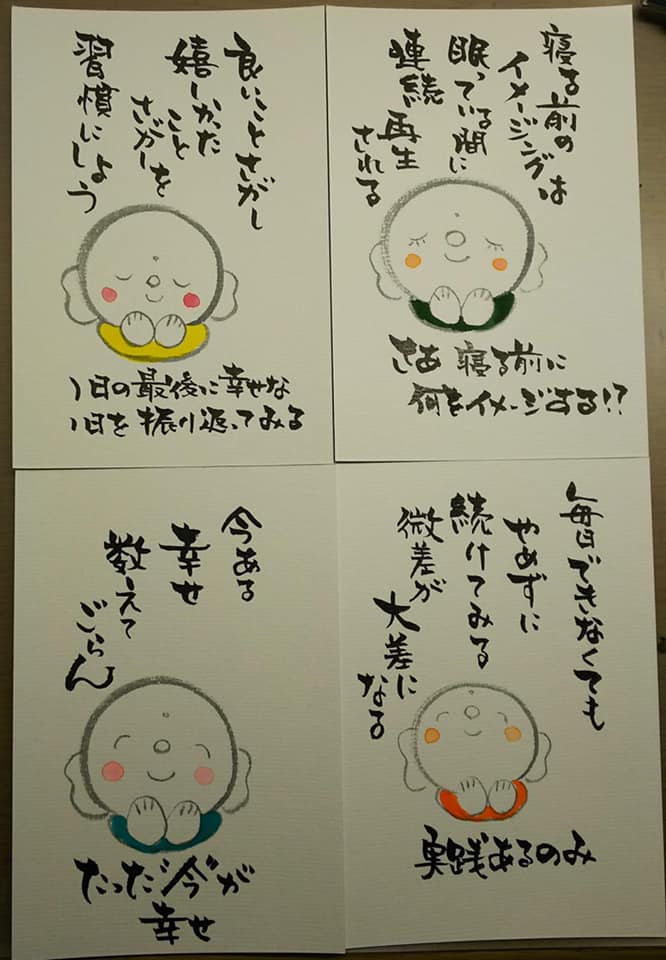 良いことさがし
嬉しかった
こと
さがしを
習慣にしよう
1日の最後に幸せな
1日を振り返ってみる
寝る前の
イメージングは
眠っている間に
連続再生
される
さあ 寝る前に
何をイメージする!?
今ある
幸せ
数えて
ごらん
たった"今"が
幸せ
毎日できなくても
やめずに
続けてみる
微差が
大差に
なる
実践あるのみ